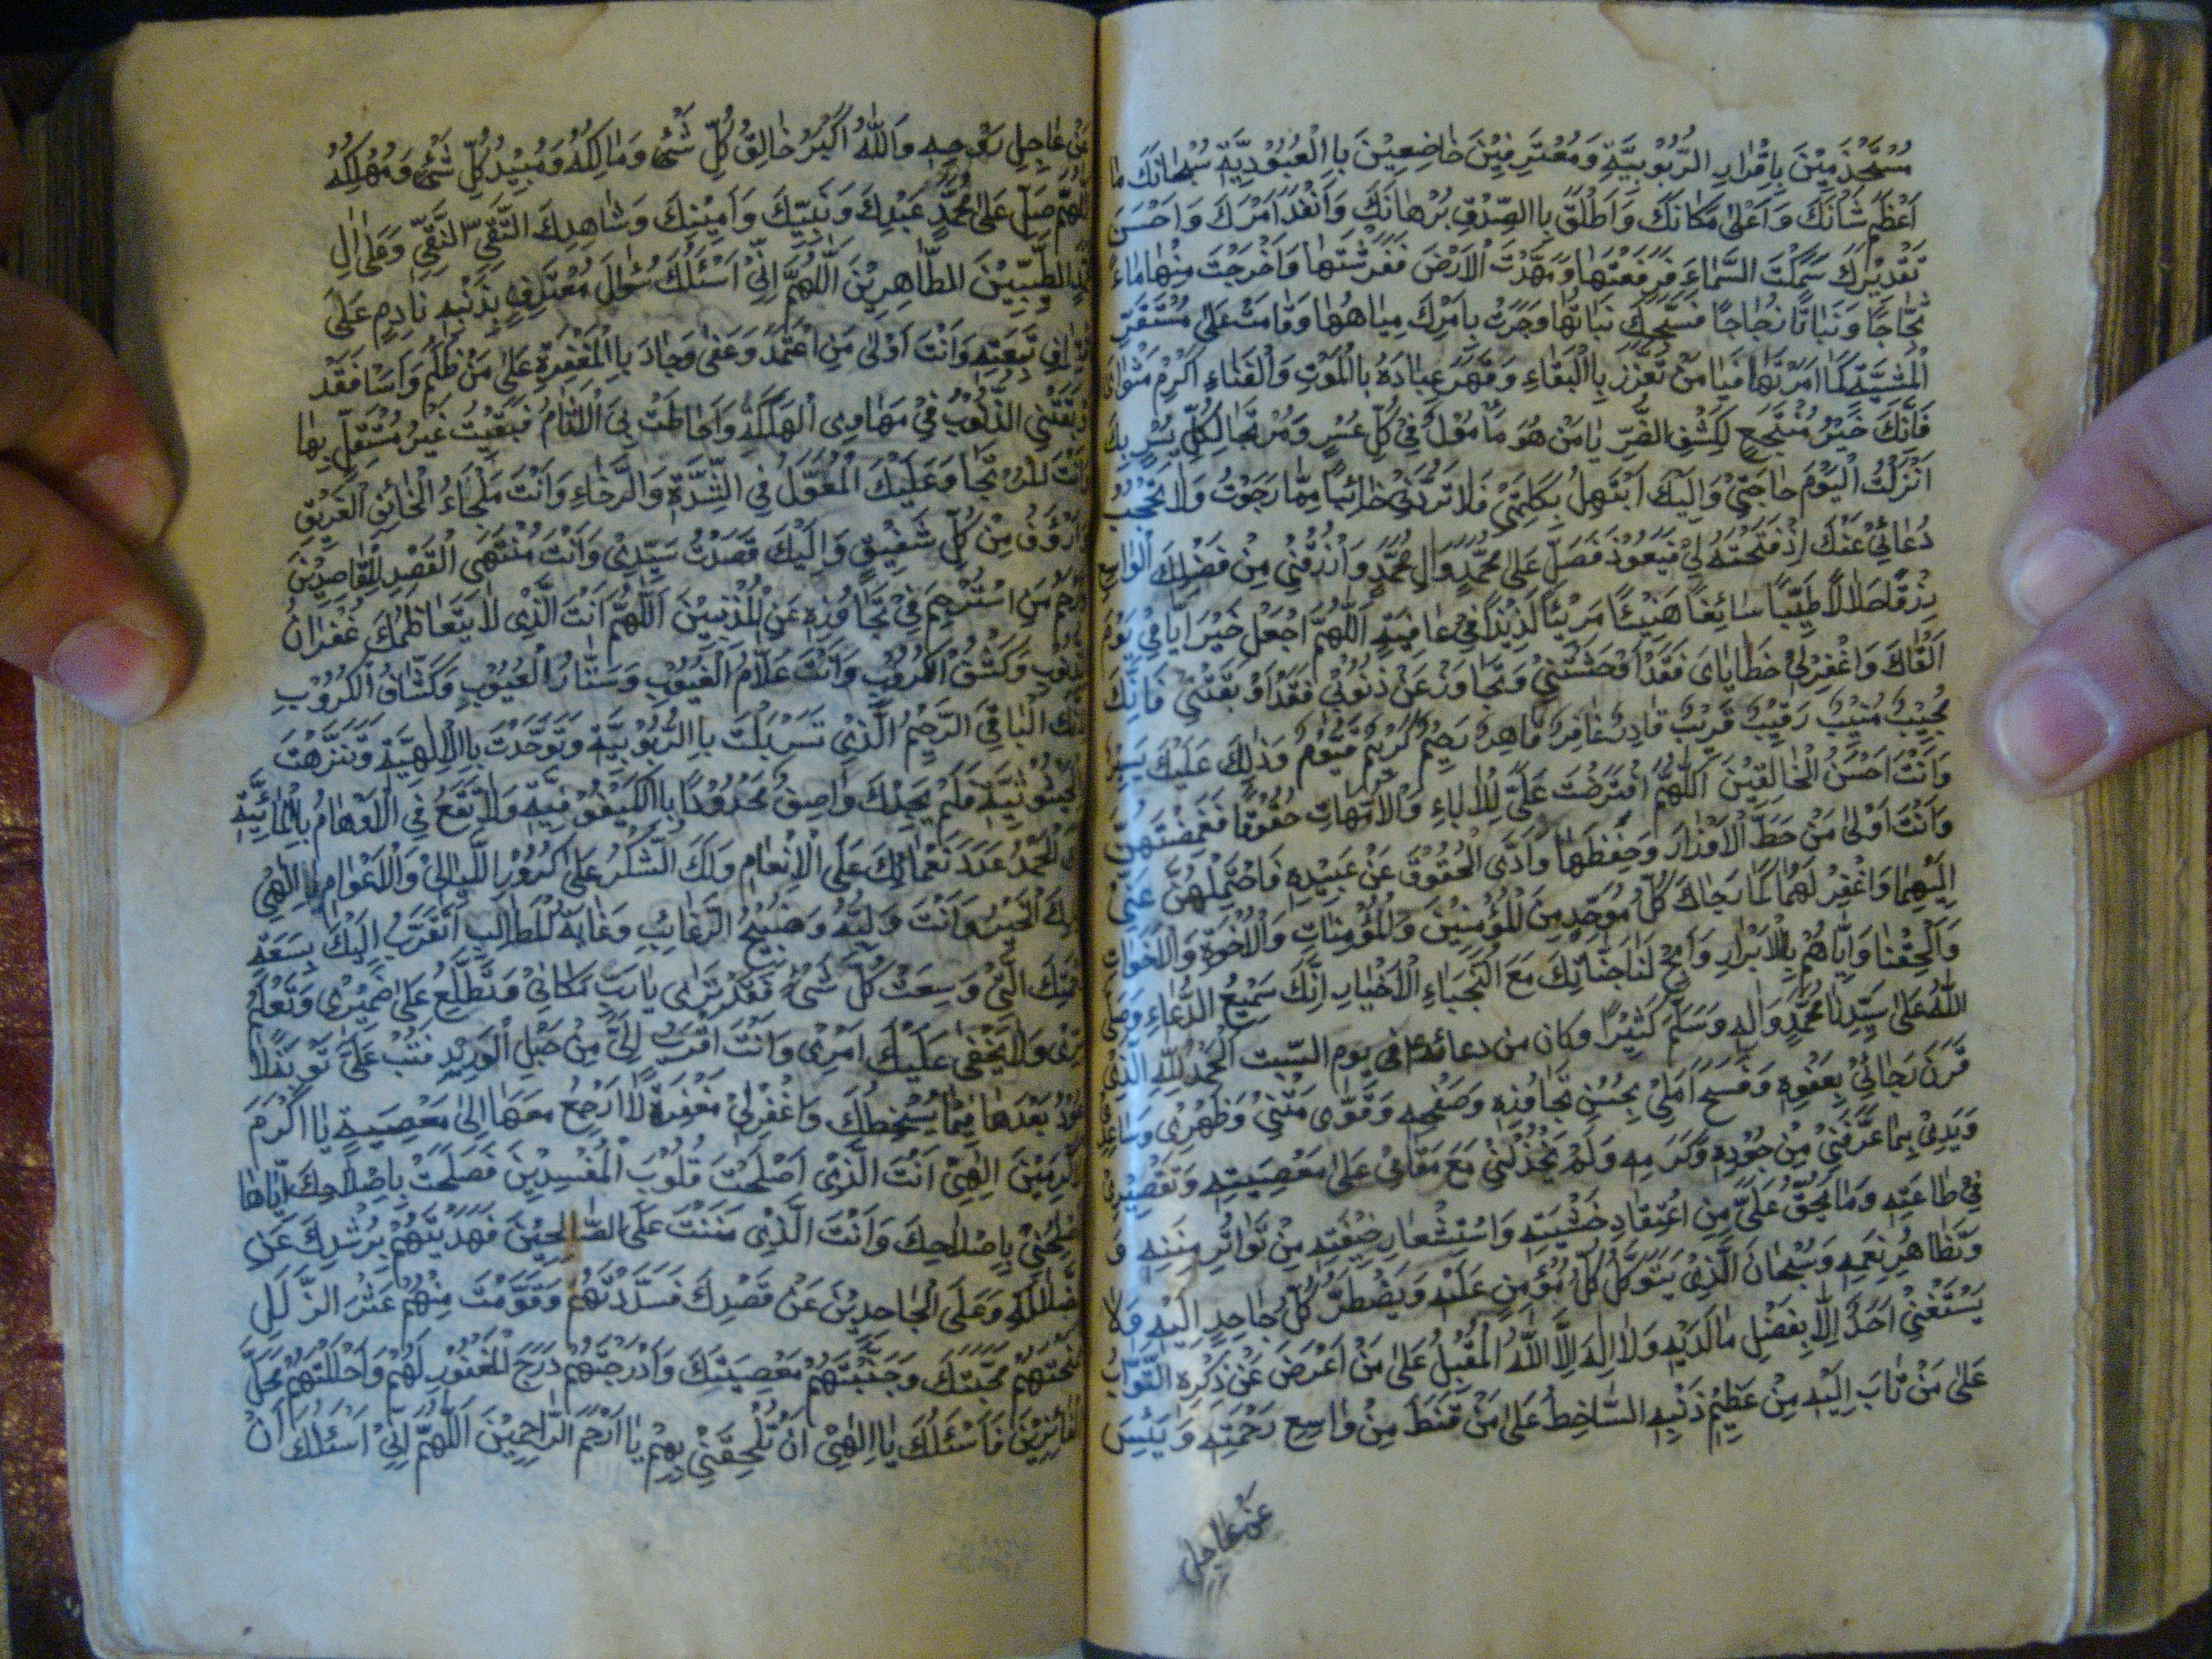 مُسْتَجْذِمِيْنَ بِاِقْرَارِ الرُّبُوْبِيَّةِ وَمُعْتَرِفِيْنَ خَاضِعِيْنَ بِاِالْعُبُوْدِيَّةِ سُبْحَانَكَ مٰا
اَعْظَمَ شَأْنَكَ وَاَعْلٰى مَكَانَكَ وَاَطْلَقَ بِاِالصِّدْقِ بُرْهَانَكَ وَاَنْفَذَ اَمْرَكَ وَاَحْسَنَ
تَقْدِيْرَكَ سَمَكْتَ السَّمٰاءَ فَرَفَعْتَهَا وَمَهَّدْتَ الْاَرْضَ فَفَرَشْتَهَا وَاَخْرَجْتَ مِنْهَا مٰاءً
ثَجّٰاجًا وَنَبَاتًا رَجْرَاجًا فَسَبَّحَكَ نَبَاتُهَا وَجَرَتْ بِاَمْرِكَ مِيٰاهُهٰا وَقٰامَتْ عَلٰى مُسْتَقَرِّ
الْمَشِيَّةِ كَمٰا اَمَرْتَهٰا فَيٰا مَنْ تَعَزَّزَ بِاِالْبَقٰاءِ وَقَهَرَ عِبٰادَهُ بِالْمَوْتِ وَالْفَنٰاءِ اَكْرِمْ مَثْوٰايَ
فَاِنَّكَ خَيْرُ مُنْتَجَعٍ لِكَشْفِ الضُّرِّ يٰا مَنْ هُوَ مَأْمُوْلٌ فِيْ كُلِّ عُسْرٍ وَمُرْتَجٰا لِكُلِّ يُسْرٍ بِكَ
اَنْزَلْتُ الْيَوْمَ حٰاجَتِيْ وَاِلَيْكَ اَبْتَهِلُ بِكَلِمَتِيْ فَلٰا تَرُدَّنِيْ خٰائِبًا مِمّٰا رَجَوْتُ وَلٰا تَحْجُبْ
دُعَائِيْ عَنْكَ اِذْ فَتَحْتَهُ لِيْ فَصَلِّ عَلٰى مُحَمَّدٍ وَاٰلِ مُحَمَّدٍ وَارْزُقْنِيْ مِنْ فَضْلِكَ الْوٰاسِعِ
رِزْقًا حَلٰالًا طَيِّبًا سٰائِغًا هَنِيْئًا مَرِيْئًا لَذِيْذًا فِيْ عٰافِيَةٍ اَللّٰهُمَّ اجْعَلْ خَيْرَ اَيّٰامِيْ يَوْمَ
اَلْقٰاكَ وَاغْفِرْ لِيْ خَطٰايٰايَ فَقَدْ اَوْحَشَتْنِيْ وَتَجٰاوَزْ عَنْ ذُنُوْبِيْ فَقَدْ اَوْبَقَتْنِيْ فَاِنَّكَ
مُجِيْبٌ مُثِيْبٌ رَقِيْبٌ قَرِيْبٌ قٰادِرٌ غٰافِرٌ قٰاهِرٌ رَحِيْمٌ كَرِيْمٌ قَيُّوْمٌ وَذٰلِكَ عَلَيْكَ يَسِيْرٌ
وَاَنْتَ اَحْسَنُ الْخٰالِقِيْنَ اَللّٰهُمَّ افْتَرَضْتَ عَلَيَّ لِلْاٰبٰاءِ وَالْاُمَّهٰاتِ حُقُوْقًا فَعَظَّمْتَهُنَّ
وَاَنْتَ اَوْلٰى مَنْ حَطَّ الْاَوْزَارَ وَخَفَّفَهَا وَاَدَّى الْحُقُوْقَ عَنْ عَبِيْدِهِ فَاحْتَمِلْهُنَّ عَنِّيْ
اِلَيْهِمٰا وَاغْفِرْ لَهُمٰا كَمٰا رَجٰاكَ كُلُّ مُوَحِّدٍ مِنَ الْمُؤْمِنِيْنَ وَالْمُؤْمِنٰاتِ وَالْاِخْوَةِ وَالْاَخَوٰاتِ
وَاَلْحِقْنٰا وَاِيّٰاهُمْ بِالْاَبْرٰارِ وَاَبِحْ لَنٰا جَنّٰاتِكَ مَعَ النُّجَبٰاءِ الْاَخْيٰارِ اِنَّكَ سَمِيْعُ الدُّعٰاءِ وَصَلَّى
اللّٰهُ عَلٰى سَيِّدِنٰا مُحَمَّدٍ وَاٰلِهِ وَسَلَّمَ كَثِيْرًا وكان من دعائه في يوم السّبت اَلْحَمْدُ لِلّٰهِ الَّذِيْ
قَرَنَ رَجٰائِيْ بِعَفْوِهِ وَفَسَحَ اَمَلِيْ بِحُسْنِ تَجٰاوُزِهِ وَصَفْحِهِ وَقَوّٰى مَتْنِيْ وَظَهْرِيْ وَسٰاعِدِيْ
وَيَدِيْ بِمٰا عَرَّفَنِيْ مِنْ جُوْدِهِ وَكَرَمِهِ وَلَمْ يَخْذُلْنِيْ مَعَ مَقٰامِيْ عَلٰى مَعْصِيَتِهِ وَتَقْصِيْرِيْ
فِيْ طٰاعَتِهِ وَمٰا يَحِقُّ عَلَيَّ مِنِ اعْتِقٰادِ خَشْيَتِهِ وَاسْتِشْعٰارِ خِيْفَتِهِ مِنْ تَوٰاتُرِ مِنَنِهِ وَ
وَتَظٰاهُرِ نِعَمِهِ وَسُبْحٰانَ الَّذِيْ يَتَوَكَّلُ كُلُّ مُؤْمِنٍ عَلَيْهِ وَيَضْطَرُّ كُلُّ جٰاحِدٍ اِلَيْهِ وَلٰا
يَسْتَغْنِيْ اَحَدٌ اِلَّا بِفَضْلِ مٰا لَدَيْهِ وَلٰا اِلٰهَ اِلَّا اللّٰهُ الْمُقْبِلُ عَلٰى مَنْ اَعْرَضَ عَنْ ذِكْرِهِ التَّوّٰابُ
عَلٰى مَنْ تٰابَ اِلَيْهِ مِنْ عَظِيْمِ ذَنْبِهِ السّٰاخِطُ عَلٰى مَنْ قَنَطَ مِنْ وٰاسِعِ رَحْمَتِهِ وَيَئِسَ
عَنْ عٰاجِلِ
عَنْ عٰاجِلِ رَوْحِهِ وَاللّٰهُ اَكْبَرُ خٰالِقُ كُلِّ شَيْءٍ وَمٰالِكُهُ وَمُبِيْدُ كُلِّ شَيْءٍ وَمُهْلِكُهُ
اَللّٰهُمَّ صَلِّ عَلٰى مُحَمَّدٍ عَبْدِكَ وَنَبِيِّكَ وَاَمِيْنِكَ وَشٰاهِدِكَ التَّقِيِّ النَّقِيِّ وَعَلٰى اٰلِ
الطَّيِّبِيْنَ الطّٰاهِرِيْنَ اَللّٰهُمَّ اِنِّيْ اَسْئَلُكَ سُؤٰالَ مُعْتَرِفٍ بِذَنْبِهِ نٰادِمٍ عَلَى
تَبِعَتِهِ وَاَنْتَ اَوْلٰى مَنِ اعْتُمِدَ وَعَفٰى وَجٰادَ بِاِالْمَغْفِرَةِ عَلٰى مَنْ ظَلَمَ وَاَسٰا فَقَدْ
اَوْبَقَتْنِي الذُّنُوْبُ فِيْ مَهٰاوِي الْهَلَكَةِ وَاَحٰاطَتْ بِيَ الْاٰثٰامُ فَبَقِيْتُ غَيْرَ مُسْتَقِلٍّ بِهٰا
وَاَنْتَ الْمُرْتَجٰا وَعَلَيْكَ الْمُعَوَّلُ فِي الشِّدَّةِ وَالرَّخٰاءِ وَاَنْتَ مَلْجَاءُ الْخٰائِفِ الْغَرِيْقِ
اَرْؤَفُ مِنْ كُلِّ شَفِيْقٍ وَاِلَيْكَ قَصَدْتُ سَيِّدِيْ وَاَنْتَ مُنْتَهَى الْقَصْدِ لِلْقٰاصِدِيْنَ
اَرْحَمُ مَنِ اسْتُرْحِمَ فِيْ تَجٰاوُزِهِ عَنِ الْمُذْنِبِيْنَ اَللّٰهُمَّ اَنْتَ الَّذِيْ لٰا يَتَعٰاظَمُكَ غُفْرٰانُ
الذُّنُوْبِ وَكَشْفُ الْكُرُوْبِ وَاَنْتَ عَلّٰامُ الْغُيُوْبِ وَسَتّٰارُ الْعُيُوْبِ وَكَشّٰافُ الْكُرُوْبِ
لِاَنَّكَ الْبٰاقِي الرَّحِيْمُ الَّذِيْ تَسَرْبَلْتَ بِاِالرُّبُوْبِيَّةِ وَتَوَحَّدْتَ بِاِالْاِلٰهِيَّةِ وَتَنَزَّهْتَ
فَلَمْ يَجِدْكَ وٰاصِفٌ مَحْدُوْدًا بِاِالْكَيْفُوْفِيَّةِ وَلٰا تَقَعُ فِي الْاَوْهٰامُ بِالْمٰائِيَّةِ
الْحَمْدُ عَدَدَ نَعْمٰائِكَ عَلَى الْاَنْعٰامِ وَلَكَ الشُّكْرُ عَلٰى كُرُوْرِ اللَّيٰالِيْ وَالْاَعْوٰامِ اِلٰهِيْ
بِيَدِكَ الْخَيْرُ وَاَنْتَ وَلِيُّهُ وَمُتِيْحُ الرَّغٰائِبِ وَغٰايَةُ الْمَطٰالِبِ اَتَقَرَّبُ اِلَيْكَ بِسَعَةِ
رَحْمَتِكَ الَّتِيْ وَسِعَتْ كُلَّ شَيْءٍ فَقَدْ تَرٰى يٰا رَبِّ مَكٰانِيْ وَتَطَّلِعُ عَلٰى ضَمِيْرِيْ وَتَعْلَمُ
سِرِّيْ وَلٰا يَخْفٰى عَلَيْكَ اَمْرِيْ وَاَنْتَ اَقْرَبُ اِلَيَّ مِنْ حَبْلِ الْوَرِيْدِ فَتُبْ عَلَيَّ تَوْبَةً لٰا
اَعُوْدُ بَعْدَهٰا فِيْمٰا يُسْخِطُكَ وَاغْفِرْ لِيْ مَغْفِرَةً لٰا اَرْجِعُ مَعَهٰا اِلٰى مَعْصِيَةٍ يٰا اَكْرَمَ
الْاَكْرَمِيْنَ اِلٰهِيْ اَنْتَ الَّذِيْ اَصْلَحْتَ قُلُوْبَ الْمُفْسِدِيْنَ فَصَلَحَتْ بِاِصْلٰاحِكَ اِيّٰاهٰا
فَاَصْلِحْنِيْ بِاِصْلٰاحِكَ وَاَنْتَ الَّذِيْ مَنَنْتَ عَلَى الضّٰالِّيْنَ فَهَدَيْتَهُمْ بِرُشْدِكَ عَنِ
الضَّلٰالَةِ وَعَلَى الْجٰاحِدِيْنَ عَنْ قَصْدِكَ فَسَدَّدْتَهُمْ وَقَوَّمْتَ مِنْهُمْ عَثْرَ الزَّلَلِ
فَمَنَحْتَهُمْ مَحَبَّتَكَ وَجَنَّبْتَهُمْ مَعْصِيَتَكَ وَاَدْرَجْتَهُمْ دَرَجَ الْمَغْفُوْرِ لَهُمْ وَاَحْلَلْتَهُمْ مَحَلَّ
الْفٰائِزِيْنَ فَاَسْئَلُكَ يٰا اِلٰهِيْ اَنْ تُلْحِقَنِيْ بِهِمْ يٰا اَرْحَمَ الرّٰاحِمِيْنَ اَللّٰهُمَّ اِنِّيْ اَسْئَلُكَ اَنْ